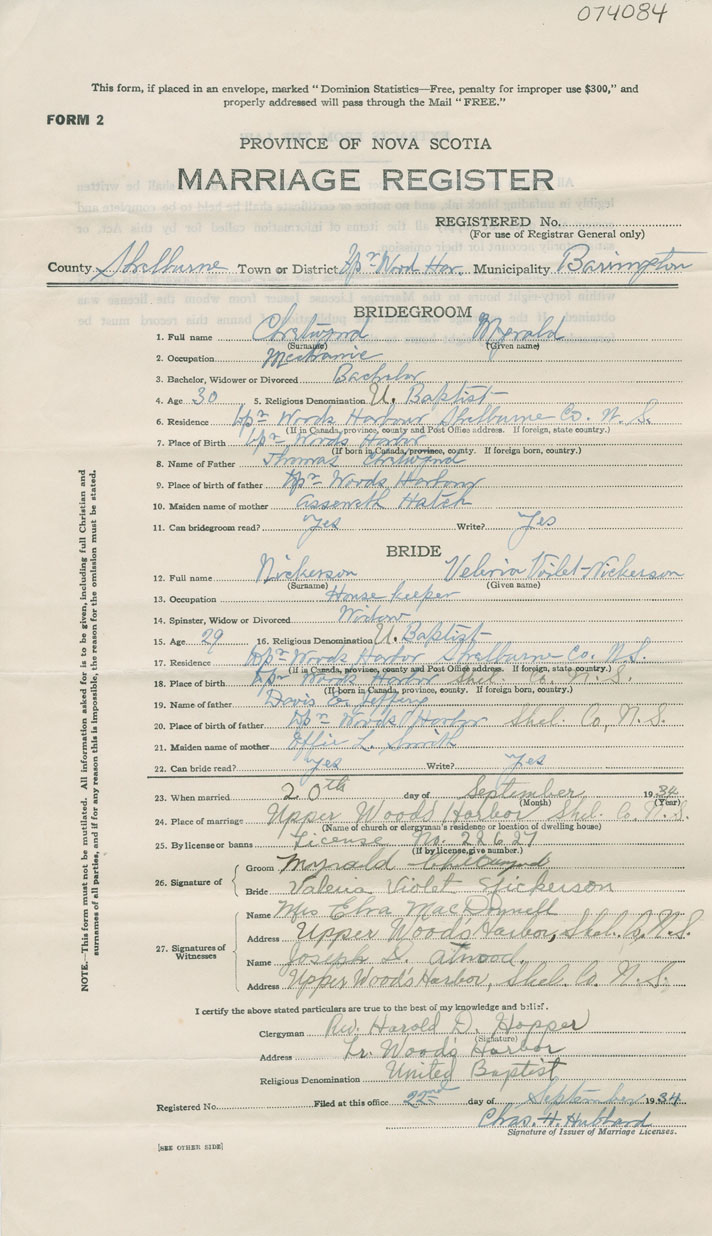 074084
This form, if placed in an envelope, marked "Dominion Statistics—Free, penalty for improper use $300," and
properly addressed will pass through the Mail "FREE."
FORM 2
PROVINCE OF NOVA SCOTIA
MARRIAGE REGISTER
REGISTERED No.
(For use of Registrar General only)
County Shelburne Town or District Upr Wood Har. Municipality Barrington
BRIDEGROOM
1. Full name Chetwynd Myrald
(Surname) (Given name)
2. Occupation Mechanic
3. Bachelor, Widower or Divorced Bachelor
4. Age 30 5. Religious Denomination U. Baptist
6. Residence Upr Woods Harbour Shelburne Co. N. S.
(If in Canada, province, county and Post Office address. If foreign, state country.)
7. Place of Birth Upr Woods Harbor
(If born in Canada, province, county. If foreign born, country.)
8. Name of Father Thomas Chetwynd
9. Place of birth of father Upr Woods Harbour
10. Maiden name of mother Assenath Hatch
11. Can bridegroom read? Yes Write? Yes
BRIDE
12. Full name Nickerson Veleria Voilet Nickerson
(Surname) (Given name)
13. Occupation House keeper
14. Spinster, Widow or Divorced Widow
15. Age 29 16. Religious Denomination U. Baptist
17. Residence Upr Woods Harbor Shelburne Co. N.S.
(If in Canada, province, county and Post Office address. If foreign, state country.)
18. Place of birth Upr Woods Harbor Shel. Co. N. S.
(If born in Canada, province, county. If foreign born, country.)
19. Name of father Davis
20. Place of birth of father Upr Woods Harbor Shel. Co, N. S.
21. Maiden name of mother Effie L. Smith
22. Can bride read? Yes Write? Yes
23. When married 20th day of September 1934
(Month) (Year)
24. Place of marriage Upper Woods Harbor Shel. Co. N. S.
(Name of church or clergyman's residence or location of dwelling house)
25. By license or banns License No. 22627
(If by license, give number.)
26. Signature of
Groom Myrald Chetwynd
Bride Valeria Violet Nickerson
27. Signatures of Witnesses
Name Mrs Elva MacDonnell
Address Upper Wood's Harbor, Shel. Co. N.S.
Name Joseph D. Atwood.
Address Upper Wood's Harbor, Shel. Co. N. S.
I certify the above stated particulars are true to the best of my knowledge and belief.
Clergyman Rev. Harold D. Hopper
(Signature)
Address Lr. Woods Harbor
Religious Denomination United Baptist
Registered No. Filed at this office 22nd day of September 1934
Chas. H. Hubbard
Signature of Issuer of Marriage Licenses.
[SEE OTHER SIDE]
NOTE.—This form must not be mutilated. All information asked for is to be given, including full Christian and
surnames of all parties, and if for any reason this is impossible, the reason for the omission must be stated.